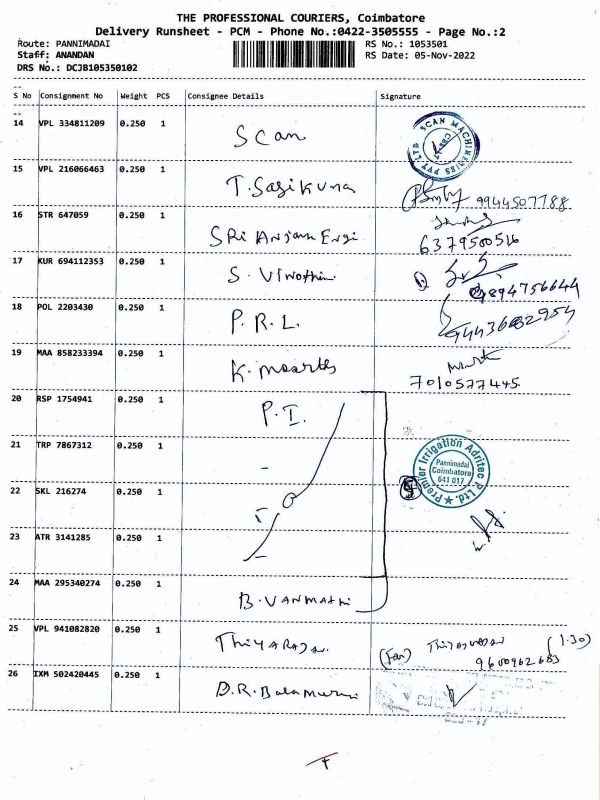 THE PROFESSIONAL COURIERS, Coimbatore
Delivery Runsheet - PCM - Phone No.:0422-3505555 - Page No.:2
Route: PANNIMADAI RS No.: 1053501
Staff: ANANDAN RS Date: 05-Nov-2022
DRS No.: DCJB105350102
S No Consignment No Weight PCS Consignee Details Signature
14 VPL 334811209 0.250 1 Scan SCAN MACHINERIES PVT LTD CBE
15 VPL 216066463 0.250 1 T. Sasikuma 9944507788
16 STR 647059 0.250 1 SRi Anjana Engi 6379500516
17 KUR 694112353 0.250 1 S. Vinothini 9894756644
18 POL 2203430 0.250 1 P.R.L.
19 MAA 858233394 0.250 1 K. 7010577445
20 RSP 1754941 0.250 1 P.I.
21 TRP 7867312 0.250 1 Premier Irrigation Adritec P. Ltd. Pannimadai Coimbatore 641 017
22 SKL 216274 0.250 1
23 ATR 3141285 0.250 1
24 MAA 295340274 0.250 1 B. VANMATHI
25 VPL 941082820 0.250 1 THIYARAJAN. (1.30) 9600962683
26 IXM 502420445 0.250 1 D.R. Balamuru